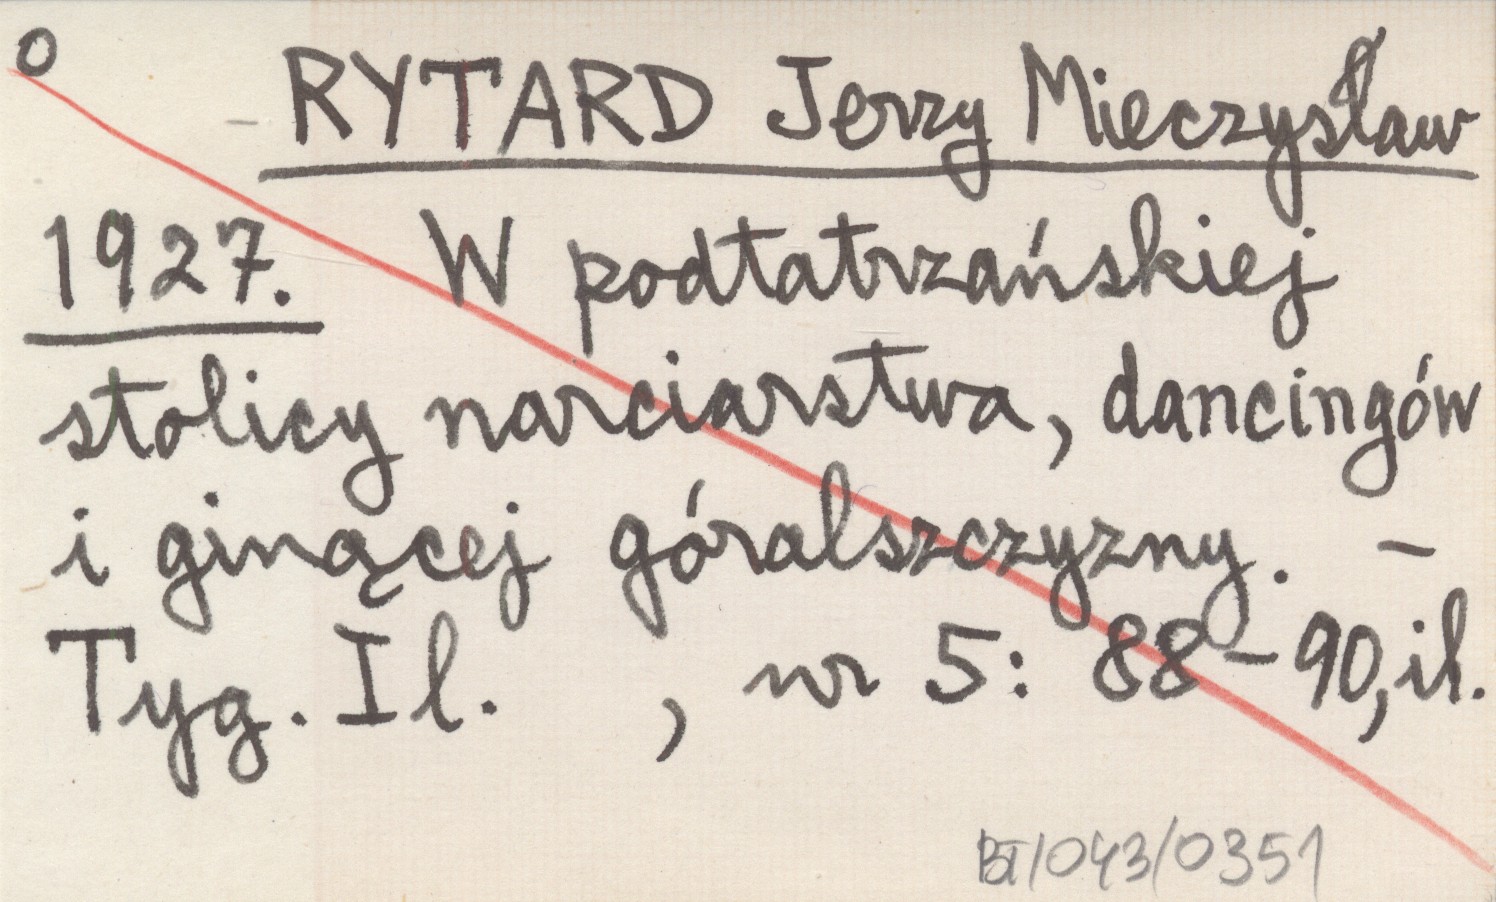 o
- RYTARD Jerzy Mieczysław
1927. W podtatrzańskiej
stolicy narciarstwa, dancingów
i ginącej góralszczyzny. -
Tyg. Il. , nr 5: 88-90, il.
BT/043/0351